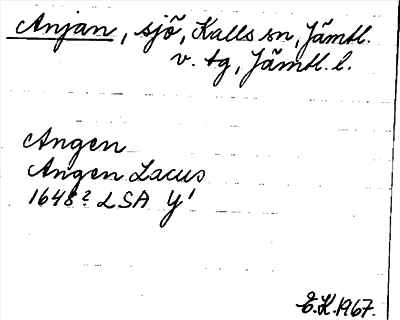 Anjan, sjö, Kalls sn, Jämtl.
v. tg, Jämtl. l.
Angen
Angen Lacus
1648? LSA Y'
E.K. 1967.